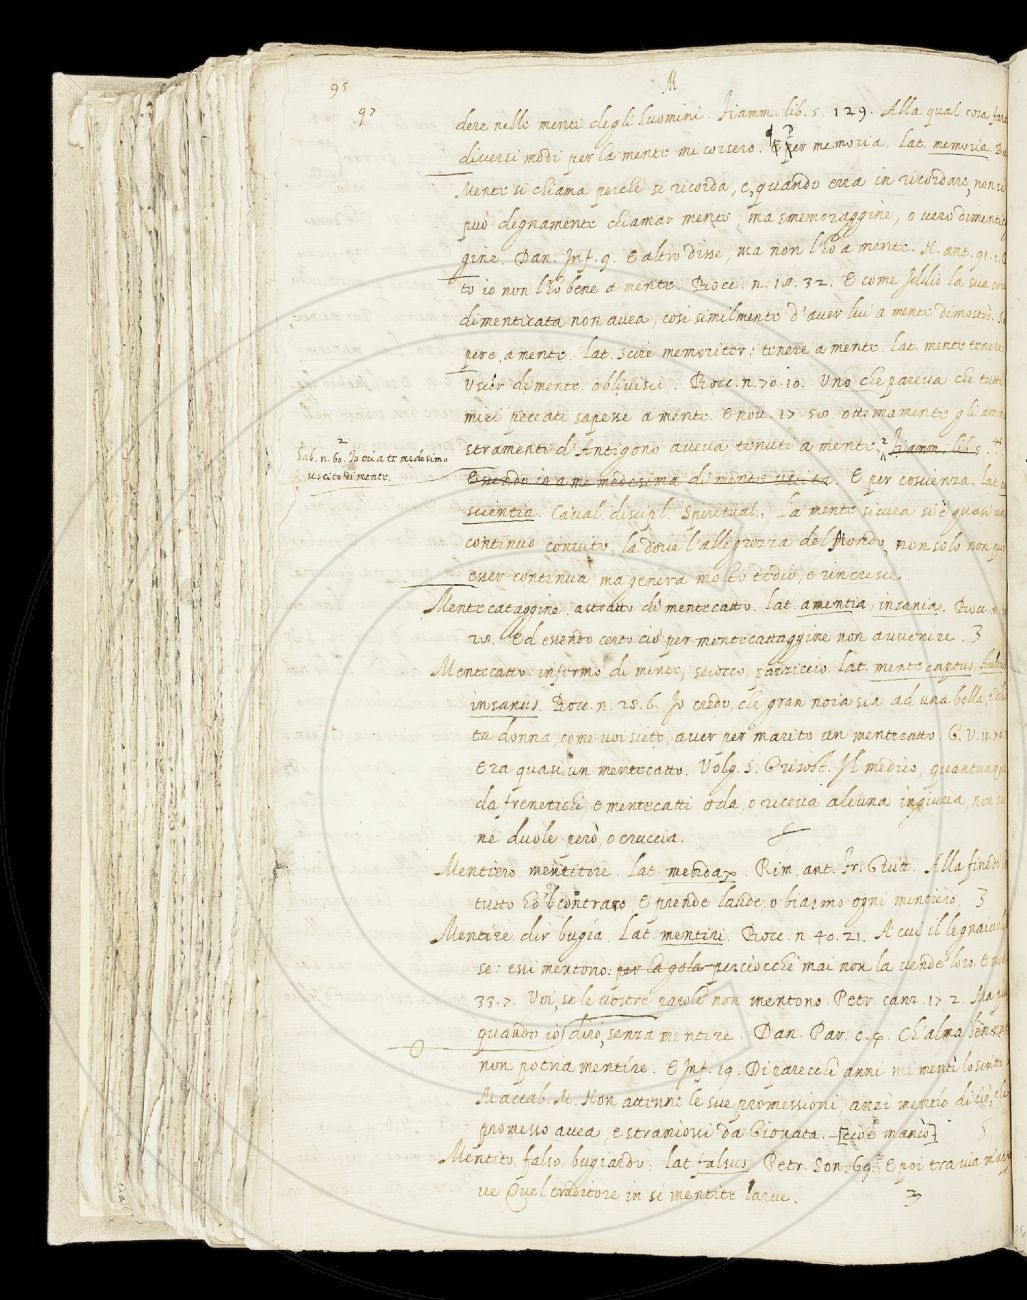 95
97
M
dere nelle menti degli huomini. Fiamm. lib. 5. 129. Alla qual cosa fare
diversi modi per la mente mi corsero. E per memoria. Lat. memoria.
Mente si chiama perche si ricorda, e, quando erra in ricordare, non si
può degnamente chiamar mente, ma smemoraggine, o vero dimentica
gine. Dan. Inf. 9. E altro disse, ma non l'hò a mente. N. ant. 91. 1.
to io non l'hò bene a mente. Bocc. n. 18. 32. E come la sua
dimenticata non avea, così similmente d'aver lui a mente dimostrò.
pere, a mente. lat. scire memoriter: tenere a mente. lat. mente tenere
Uscir di mente. oblivisci. Bocc. n. 70. 10. Uno che pareva che tutti
miei peccati sapesse a mente. E nov. 17. 58. ottimamente gli amma
stramenti d'Antigono aveva tenuti a mente. 2 Fiamm. lib. 5.
Lab. n. 60. 2 In cui a te medesimo
uscito di mente.
Essendo io a me medesima di mente uscita. E per coscienza. lat.
scientia. Caval. discipl. Spiritual. La mente sicura si è quasi un
continuo convito, la dove l'allegrezza del Mondo, non solo non può
esser continua, ma genera molto tedio, e incresce.
Mentecataggine. astratto di mentecatto. lat. amentia, insania. Bocc. n.
28. Ed essendo certo ciò per mentecattaggine non avvenire. 3
Mentecatto. infermo di mente, sciocco, pazziccio. lat. mente captus,
insanus. Bocc. n. 28. 6. Io credo, che gran noia sia ad una bella, e dilica
ta donna, come voi siete, aver per marito un mentecatto. G. V. 11.
Era quasi un mentecatto. Volg. S. Grisost. Il medico, quantunque
da frenetichi, e mentecatti oda, o riceva alcuna ingiuria, non se
ne duole però, o cruccia.
Mentiero. mentitore. lat. mendax. Rim. ant. Fr. Guitt. Alla fine
tutto ED contraro, E prende laude, o biasmo ogni mentiero. 3
Mentire. dir bugia. Lat. mentiri. Bocc. n. 40. 21. A cui il legnaiuolo
se: essi mentono: per la gola perciocchè mai non la vende loro. E
33. 7. Voi, se le vostre parole non mentono. Petr. canz. 17. 2. Ma pur
quando io dico, senza mentire. Dan. Par. c. 4. Ch'alma
non poria mentire. E Inf. 19. Di parecchi anni mi mentì lo scritto
Maccab. M. Non attenne le sue promessioni, anzi mentio di ciò, che
promesso avea, e straniossi da Gionata. [e ciò è mancò] 5
Mentito. falso, bugiardo. lat. falsus. Petr. Son. 69. E poi tra via
ve Quel traditore in sì mentite larve. 3